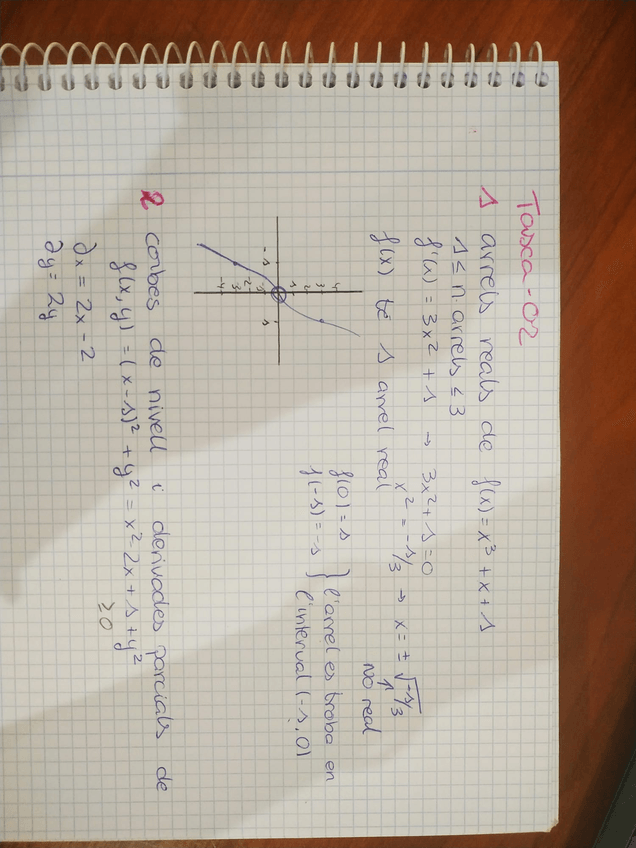 Tasca-02
1 arrels reals de f(x) = x³ + x + 1
1 ≤ n. arrels ≤ 3
f'(x) = 3x² + 1 → 3x² + 1 = 0
x² = -1/3 → x = ± √-1/3
↑
NO real
f(x) té 1 arrel real
f(0) = 1
f(-1) = -1 } l'arrel es troba en
l'interval (-1, 0)
-1 1
4
3
2
1
-2
-3
-4
2 corbes de nivell i derivades parcials de
f(x, y) = (x-1)² + y² = x² - 2x + 1 + y²
≥ 0
∂x = 2x - 2
∂y = 2y